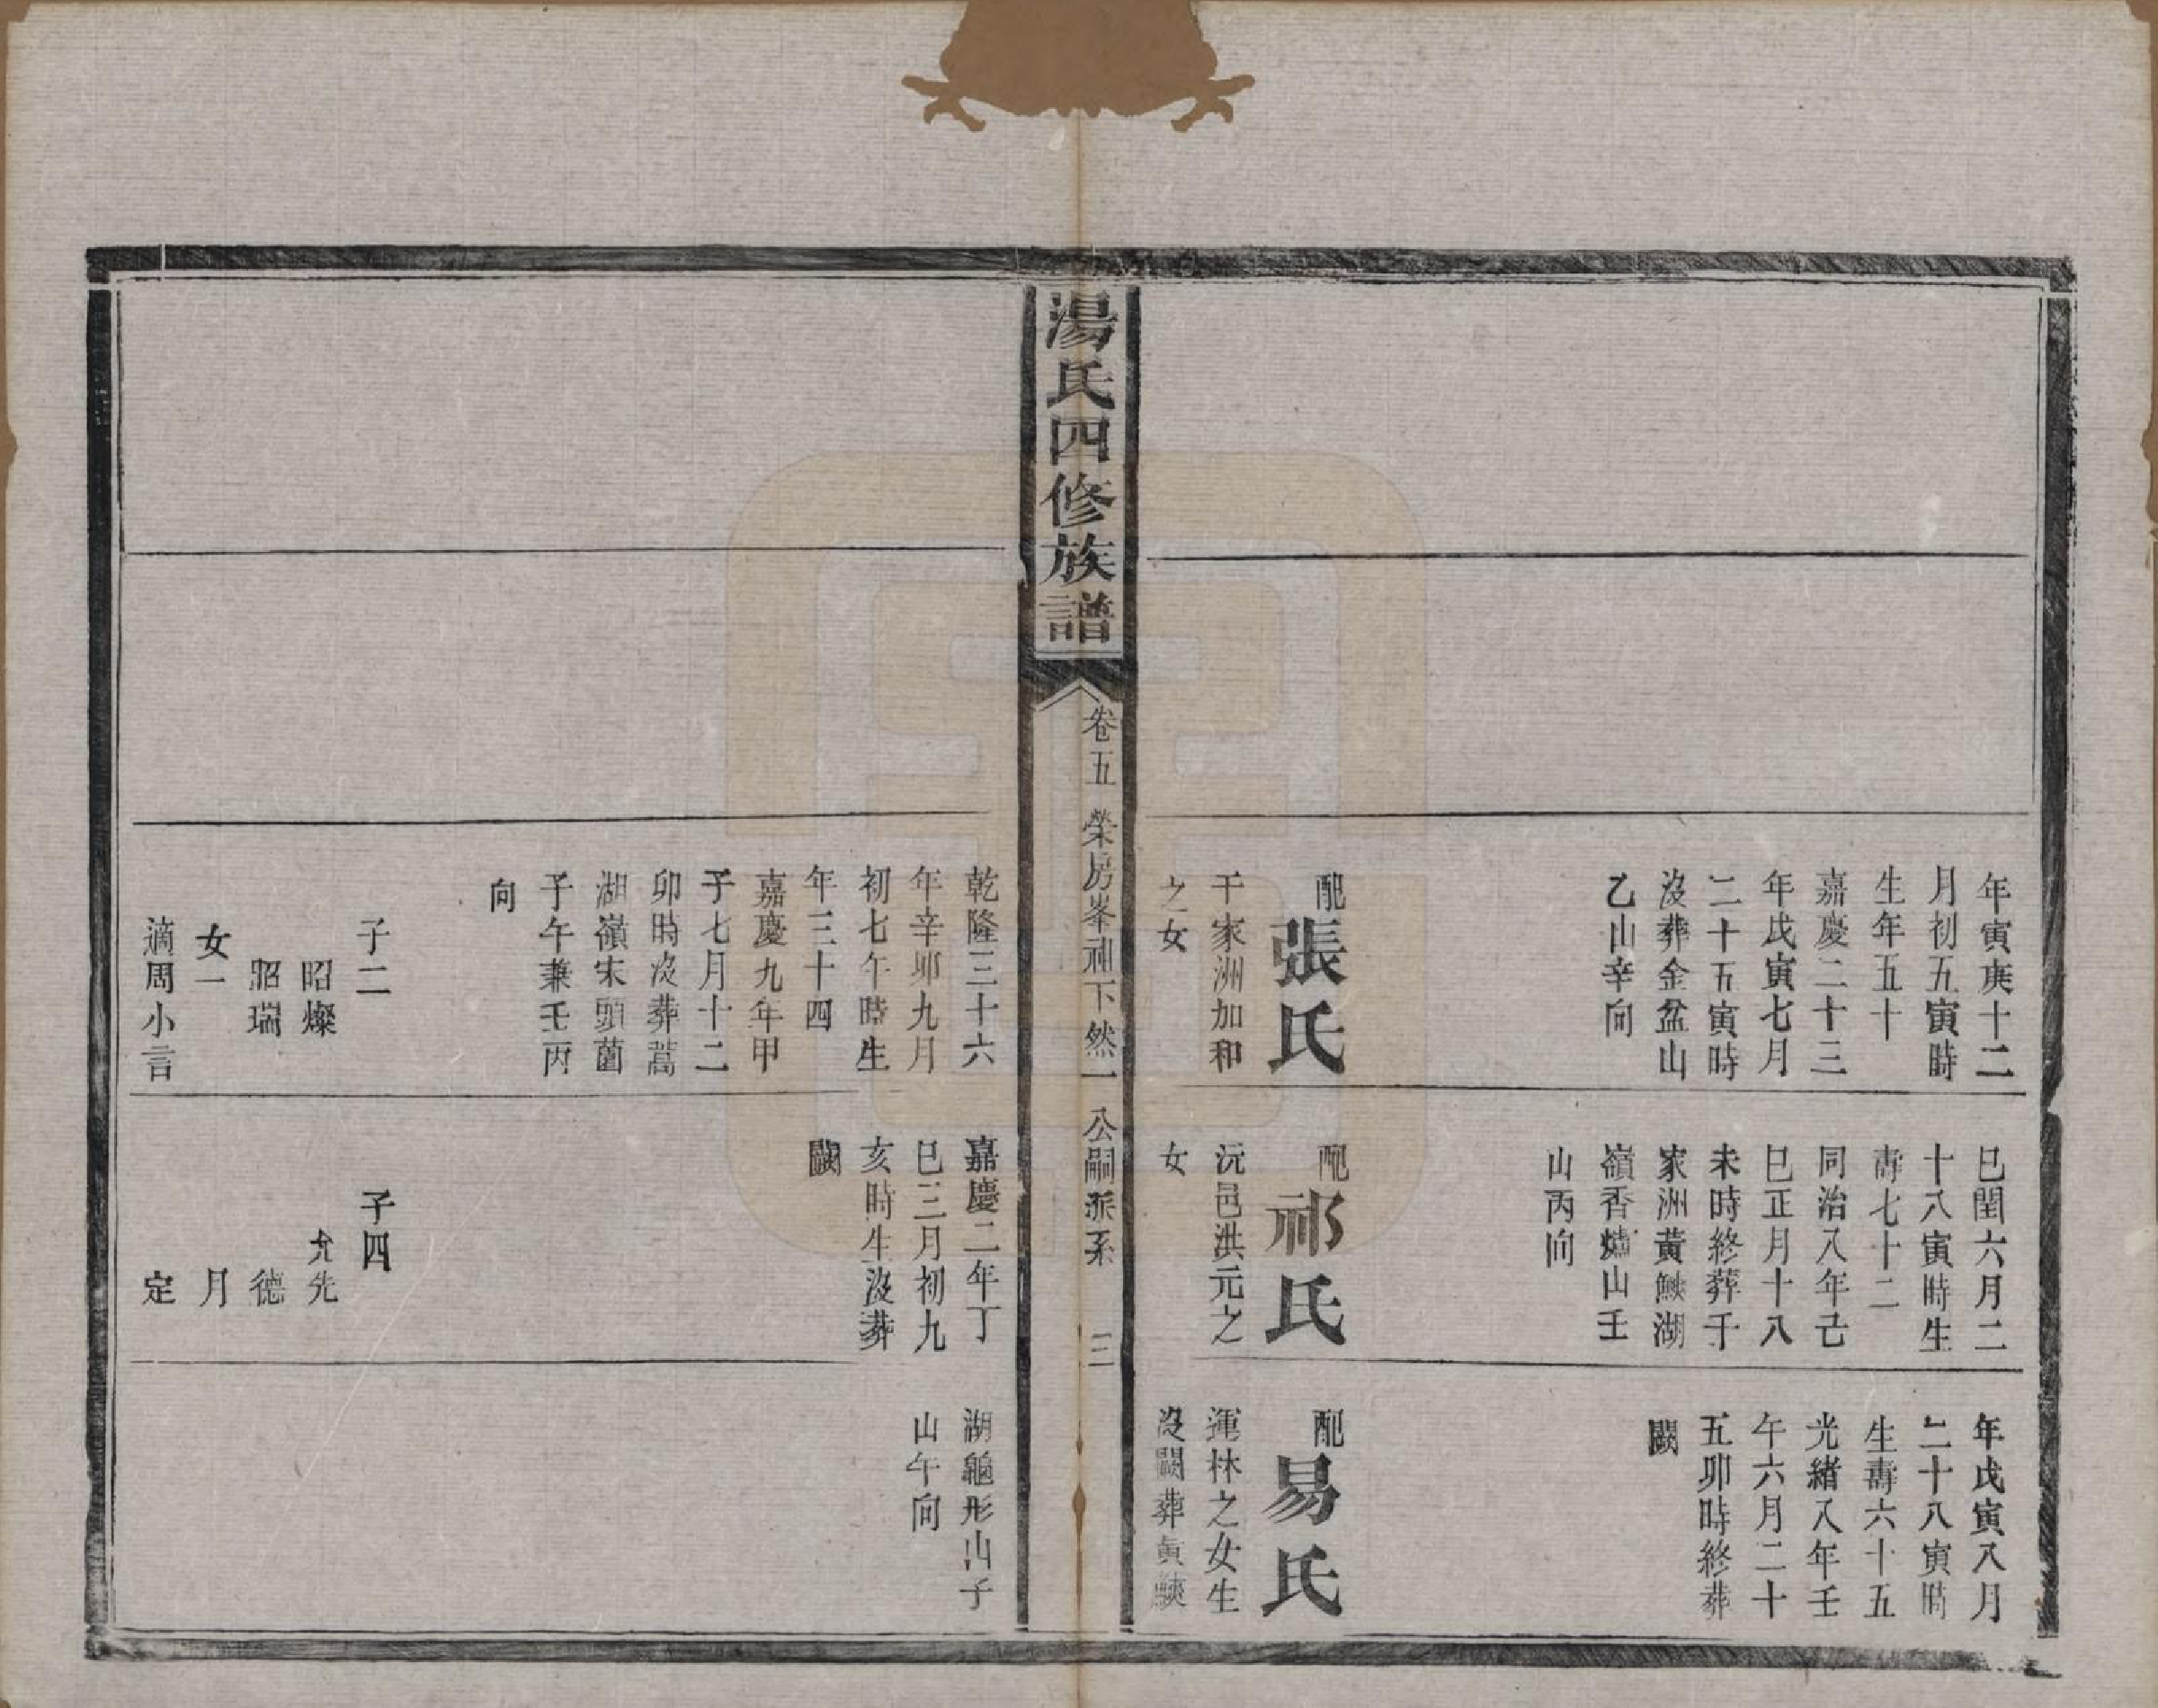 年寅庚十二
月初五寅時
生年五十
嘉慶二十三
年戊寅七月
二十五寅時
沒葬金盆山
乙山辛向
配張氏
干家洲加和
之女
巳閏六月二
十八寅時生
壽七十二
同治八年己
巳正月十八
未時終葬于
家洲黃鰱湖
嶺香爐山壬
山丙向
配祁氏
沅邑洪元之
女
年戊寅八月
二十八寅時
生壽六十五
光緒八年壬
午六月二十
五卯時終葬
闕
配易氏
運林之女生
沒闕葬黃
湯氏四修族譜
卷五 榮房峯祠下然一公嗣派系 三
乾隆三十六
年辛卯九月
初七午時生
年三十四
嘉慶九年甲
子七月十二
卯時沒葬蒿
湖嶺宋頭菌
子午兼壬丙
向
子二
昭燦
昭瑞
女一
適周小言
嘉慶二年丁
巳三月初九
亥時生沒葬
闕
子四
允先
德
月
定
湖龜形山子
山午向